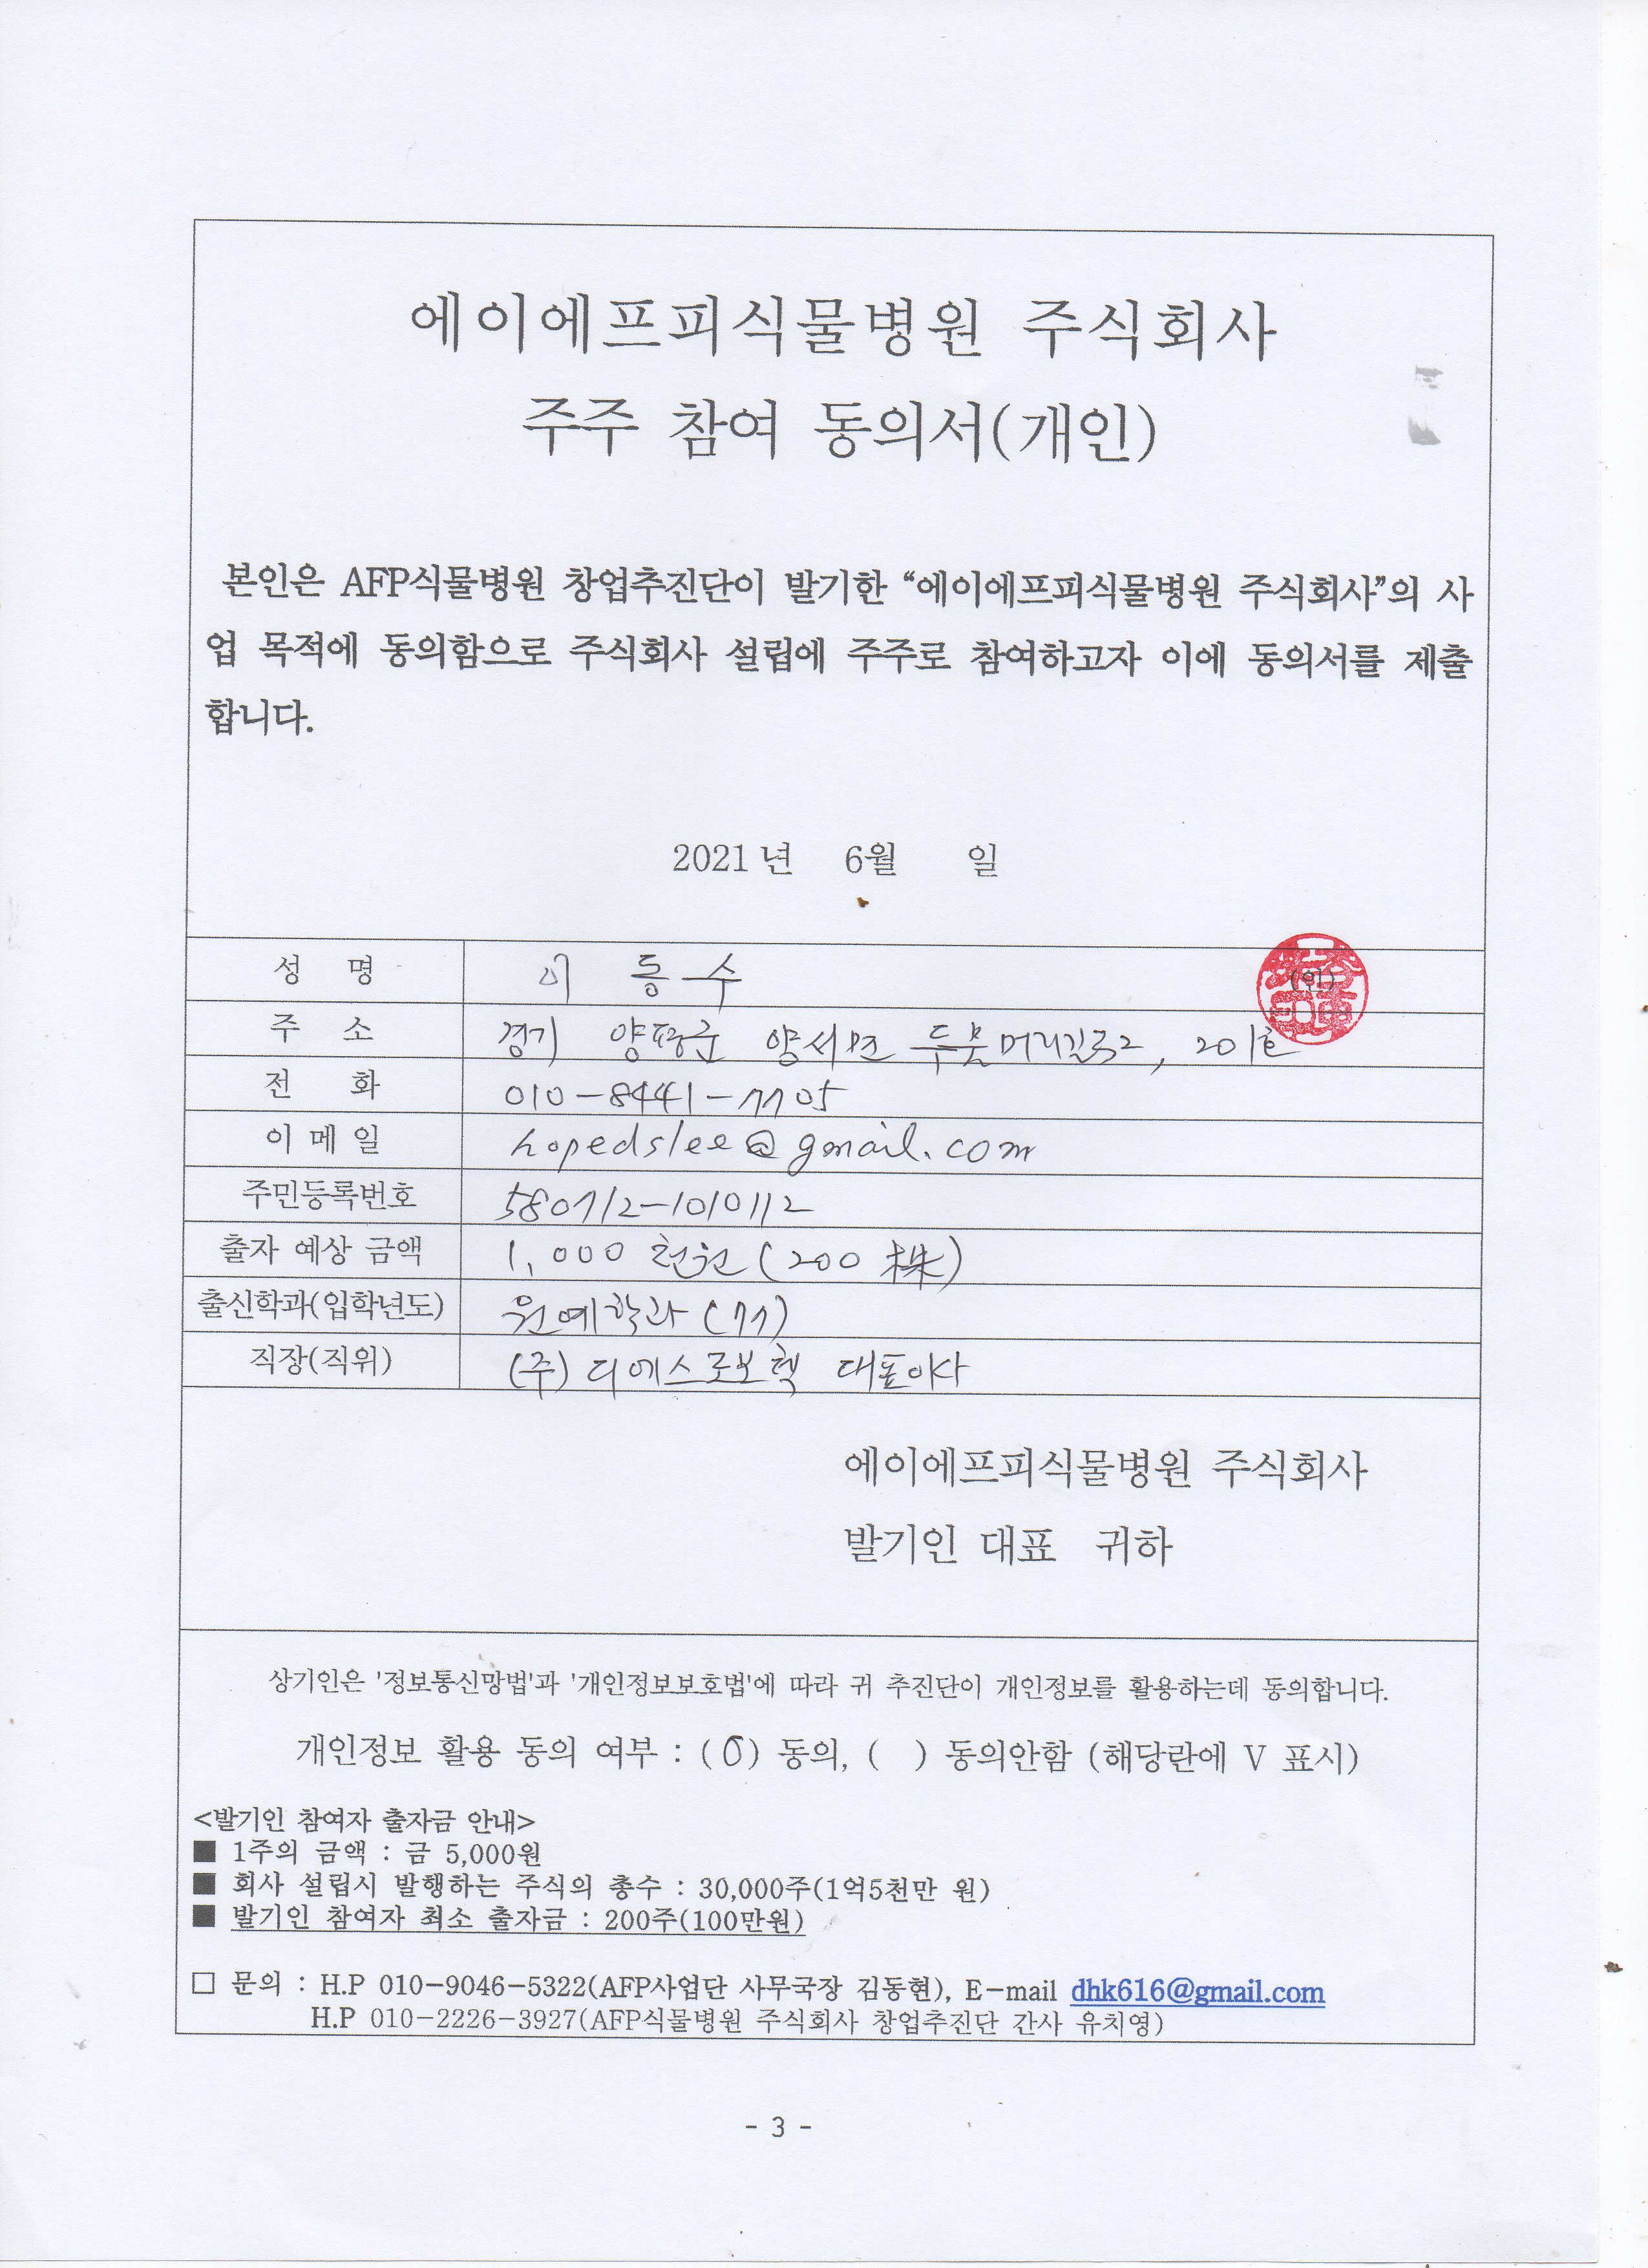 에이에프피식물병원 주식회사
주주 참여 동의서(개인)
본인은 AFP식물병원 창업추진단이 발기한 “에이에프피식물병원 주식회사”의 사
업 목적에 동의함으로 주식회사 설립에 주주로 참여하고자 이에 동의서를 제출
합니다.
2021년 6월 일
성 명 이 동 수 (인)
주 소 경기 양평군 양서면 두물머리길 , 201호
전 화 010-8441-7705
이 메 일 hopedslee@gmail.com
주민등록번호 580712-1010112
출자 예상 금액 1,000 천원 (200 株)
출신학과(입학년도) 원예학과 (77)
직장(직위) (주) 디에스로보텍 대표이사
에이에프피식물병원 주식회사
발기인 대표 귀하
상기인은 '정보통신망법'과 '개인정보보호법'에 따라 귀 추진단이 개인정보를 활용하는데 동의합니다.
개인정보 활용 동의 여부 : (O) 동의, ( ) 동의안함 (해당란에 V 표시)
<발기인 참여자 출자금 안내>
■ 1주의 금액 : 금 5,000원
■ 회사 설립시 발행하는 주식의 총수 : 30,000주(1억5천만 원)
■ 발기인 참여자 최소 출자금 : 200주(100만원)
□ 문의 : H.P 010-9046-5322(AFP사업단 사무국장 김동현), E-mail dhk616@gmail.com
H.P 010-2226-3927(AFP식물병원 주식회사 창업추진단 간사 유치영)
- 3 -